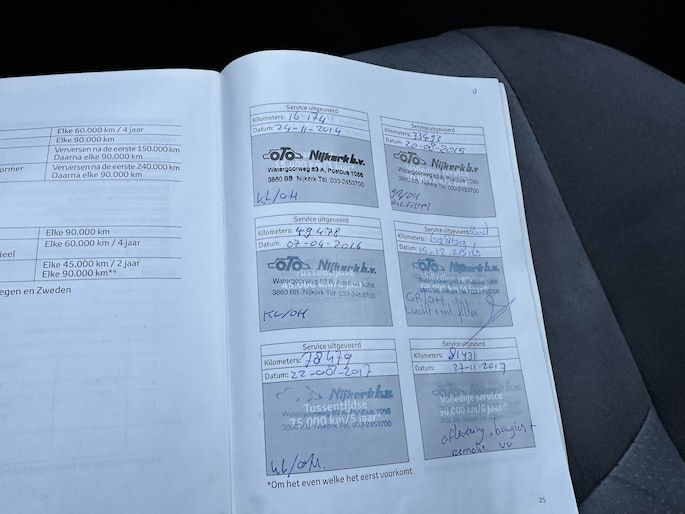 Elke 60.000 km / 4 jaar
Elke 90.000 km
Verversen na de eerste 150.000 km
Daarna elke 90.000 km
ormer
Verversen na de eerste 240.000 km
Daarna elke 90.000 km
Elke 90.000 km
ieel
Elke 60.000 km / 4 jaar
Elke 45.000 km / 2 jaar
Elke 90.000 km*⁴
egen en Zweden
Service uitgevoerd
Kilometers: 16-174
Datum: 24-11-2014
OTO Nijkerk b.v.
Watergoorweg 63 A, Postbus 1056
3860 BB Nijkerk Tel. 033-2453700
KL/OH
Service uitgevoerd
Kilometers:
Datum:
Nijkerk b.v.
Watergoorweg 63 A, Postbus 1056
3860 BB Nijkerk Tel. 033-2453700
Service uitgevoerd
Kilometers: 49478
Datum: 07-04-2016
OTO Nijkerk b.v.
Tussentijdse
Watergoorweg 63 A, Postbus 1056
3860 BB Nijkerk Tel. 033-2453700
KL/OH
Service uitgevoerd
Kilometers:
Datum: 15.12.2016
Nijkerk b.v.
Volledige service
GR/OH
Lucht + int. filter
Service uitgevoerd
Kilometers: 78479
Datum: 22-08-2017
Nijkerk b.v.
Tussentijdse
Watergoorweg 63 A, Postbus 1056
75.000 km/5 jaar*
3860 BB Nijkerk Tel. 033-2453700
KL/OH.
Service uitgevoerd
Kilometers: 81431
Datum: 27-11-2017
Nijkerk b.v.
Volledige service
90.000 km/6 jaar*
aflevering, bougies +
remolie vv
*Om het even welke het eerst voorkomt.
25